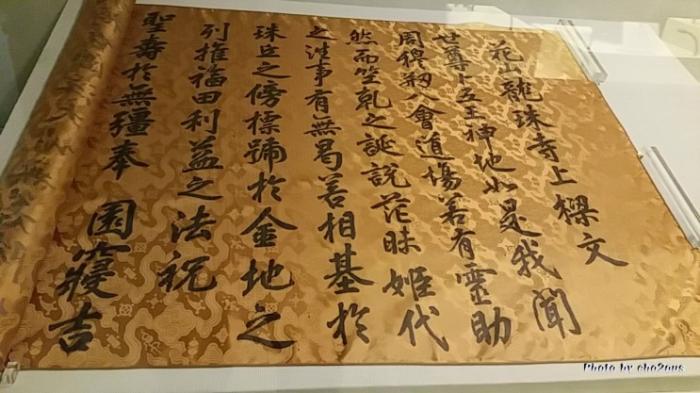 花山龍珠寺上樑文
世尊卜五王神地如是我聞
周穆刱八會道場若有靈助
然而竺乾之誕說茫昧姬代
之往事有無曷若相基於
珠丘之傍標號於金地之
列推福田利益之法祝
聖壽於無疆奉 園寢吉
Photo by cho2ous